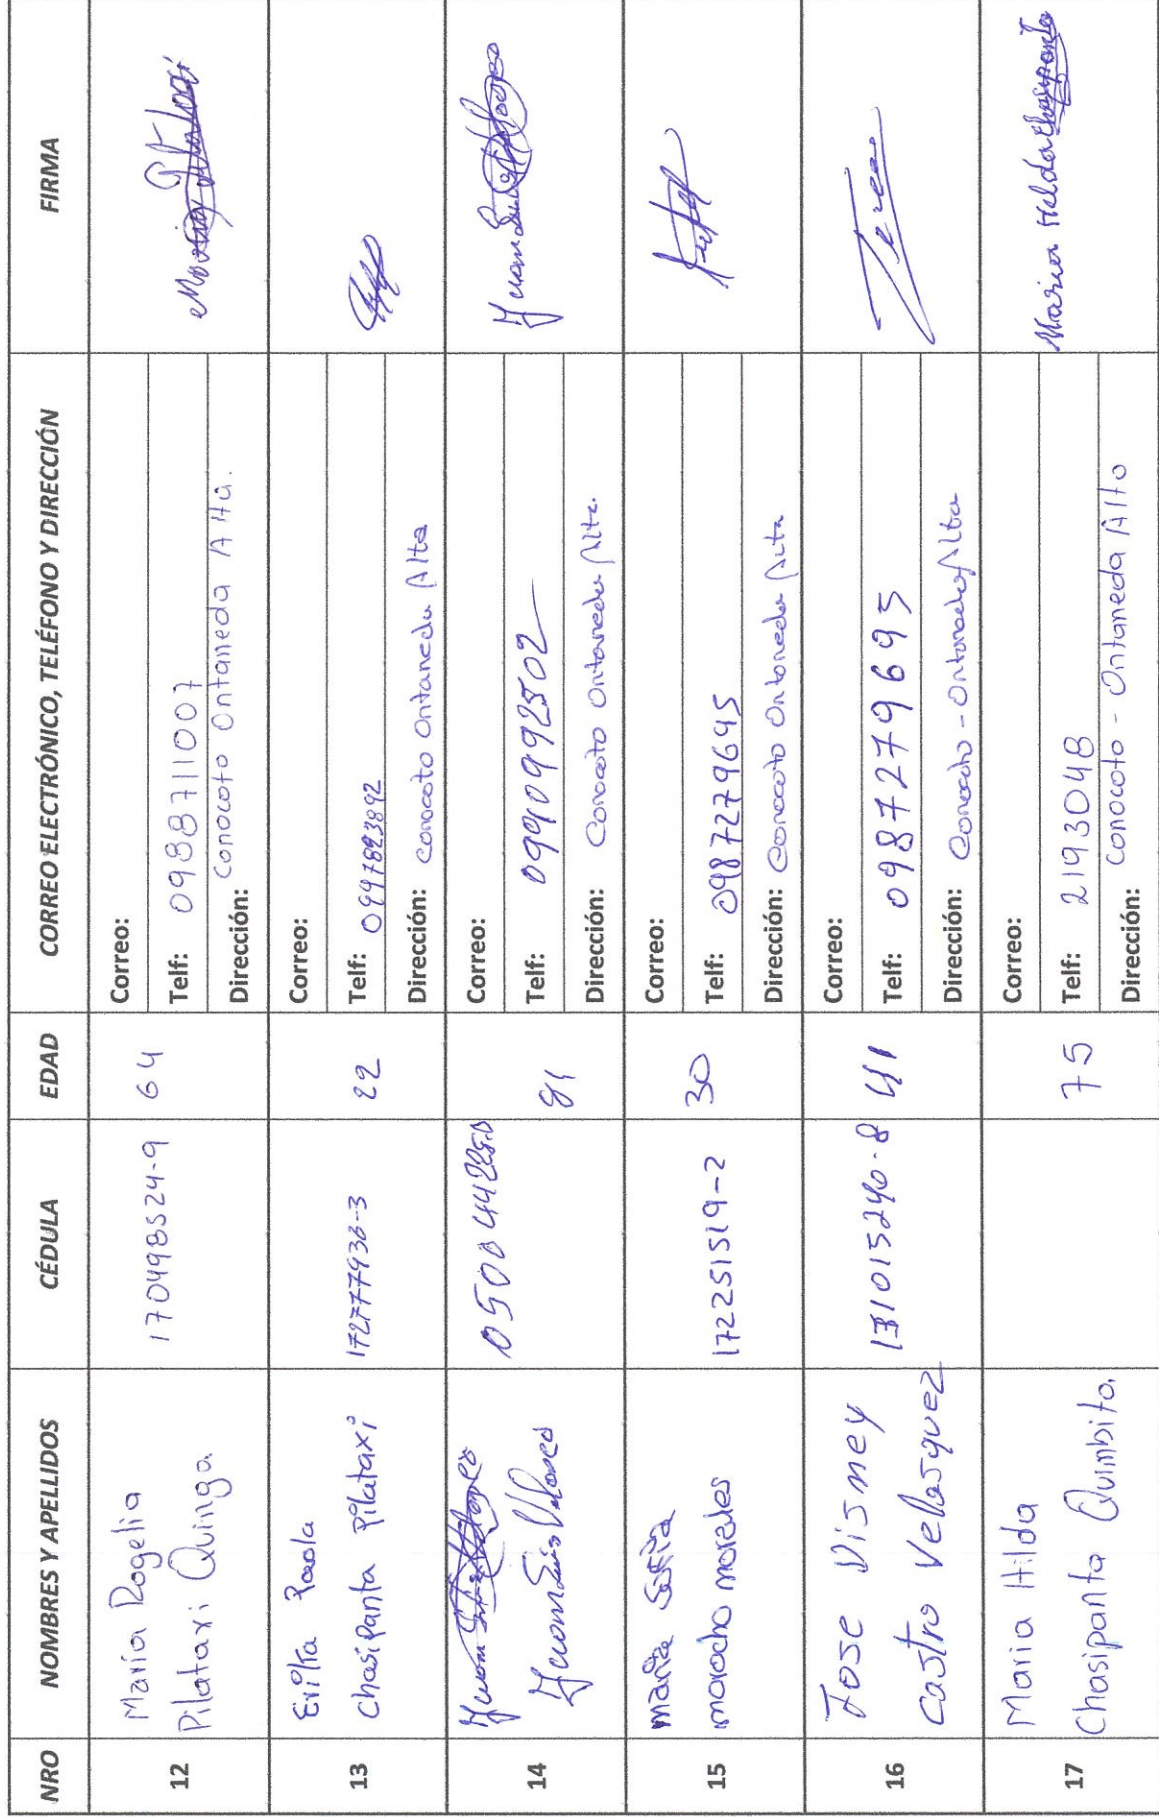 NRO NOMBRES Y APELLIDOS CÉDULA EDAD CORREO ELECTRÓNICO, TELÉFONO Y DIRECCIÓN FIRMA
12
María Rogelia
Pilataxi Quinga
170498524-9
64
Correo:
Telf: 0988711007
Dirección: Conocoto Ontaneda Alta.
Maria Pilataxi
13
Erika Paola
Chasipanta Pilataxi
22
Correo:
Telf: 0997893892
Dirección: Conocoto Ontaneda Alta
14
Juan Luis Velasco
Correo:
Telf: 09910992502
Dirección: Conocoto Ontaneda Alta.
15
maria Sofia
morocho morales
172251519-2
30
Correo:
Telf: 0987279695
Dirección: Conocoto Ontaneda Alta
16
Jose Disney
Castro Velasquez
131015240-8
41
Correo:
Telf: 0987279695
Dirección: Conocoto - Ontaneda Alta
17
Maria Hilda
Chasipanta Quimbita.
75
Correo:
Telf: 2193048
Dirección: Conocoto - Ontaneda Alto
Maria Hilda Chasipanta